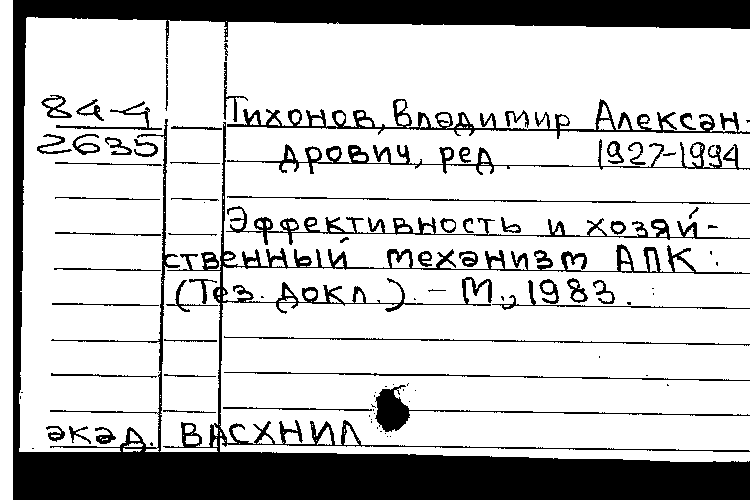 84-4
2635
Тихонов, Владимир Александ-
дрович, ред. 1927-1994
Эффективность и хозяй-
ственный механизм АПК :
(Тез. докл.). - М., 1983.
акад. ВАСХНИЛ